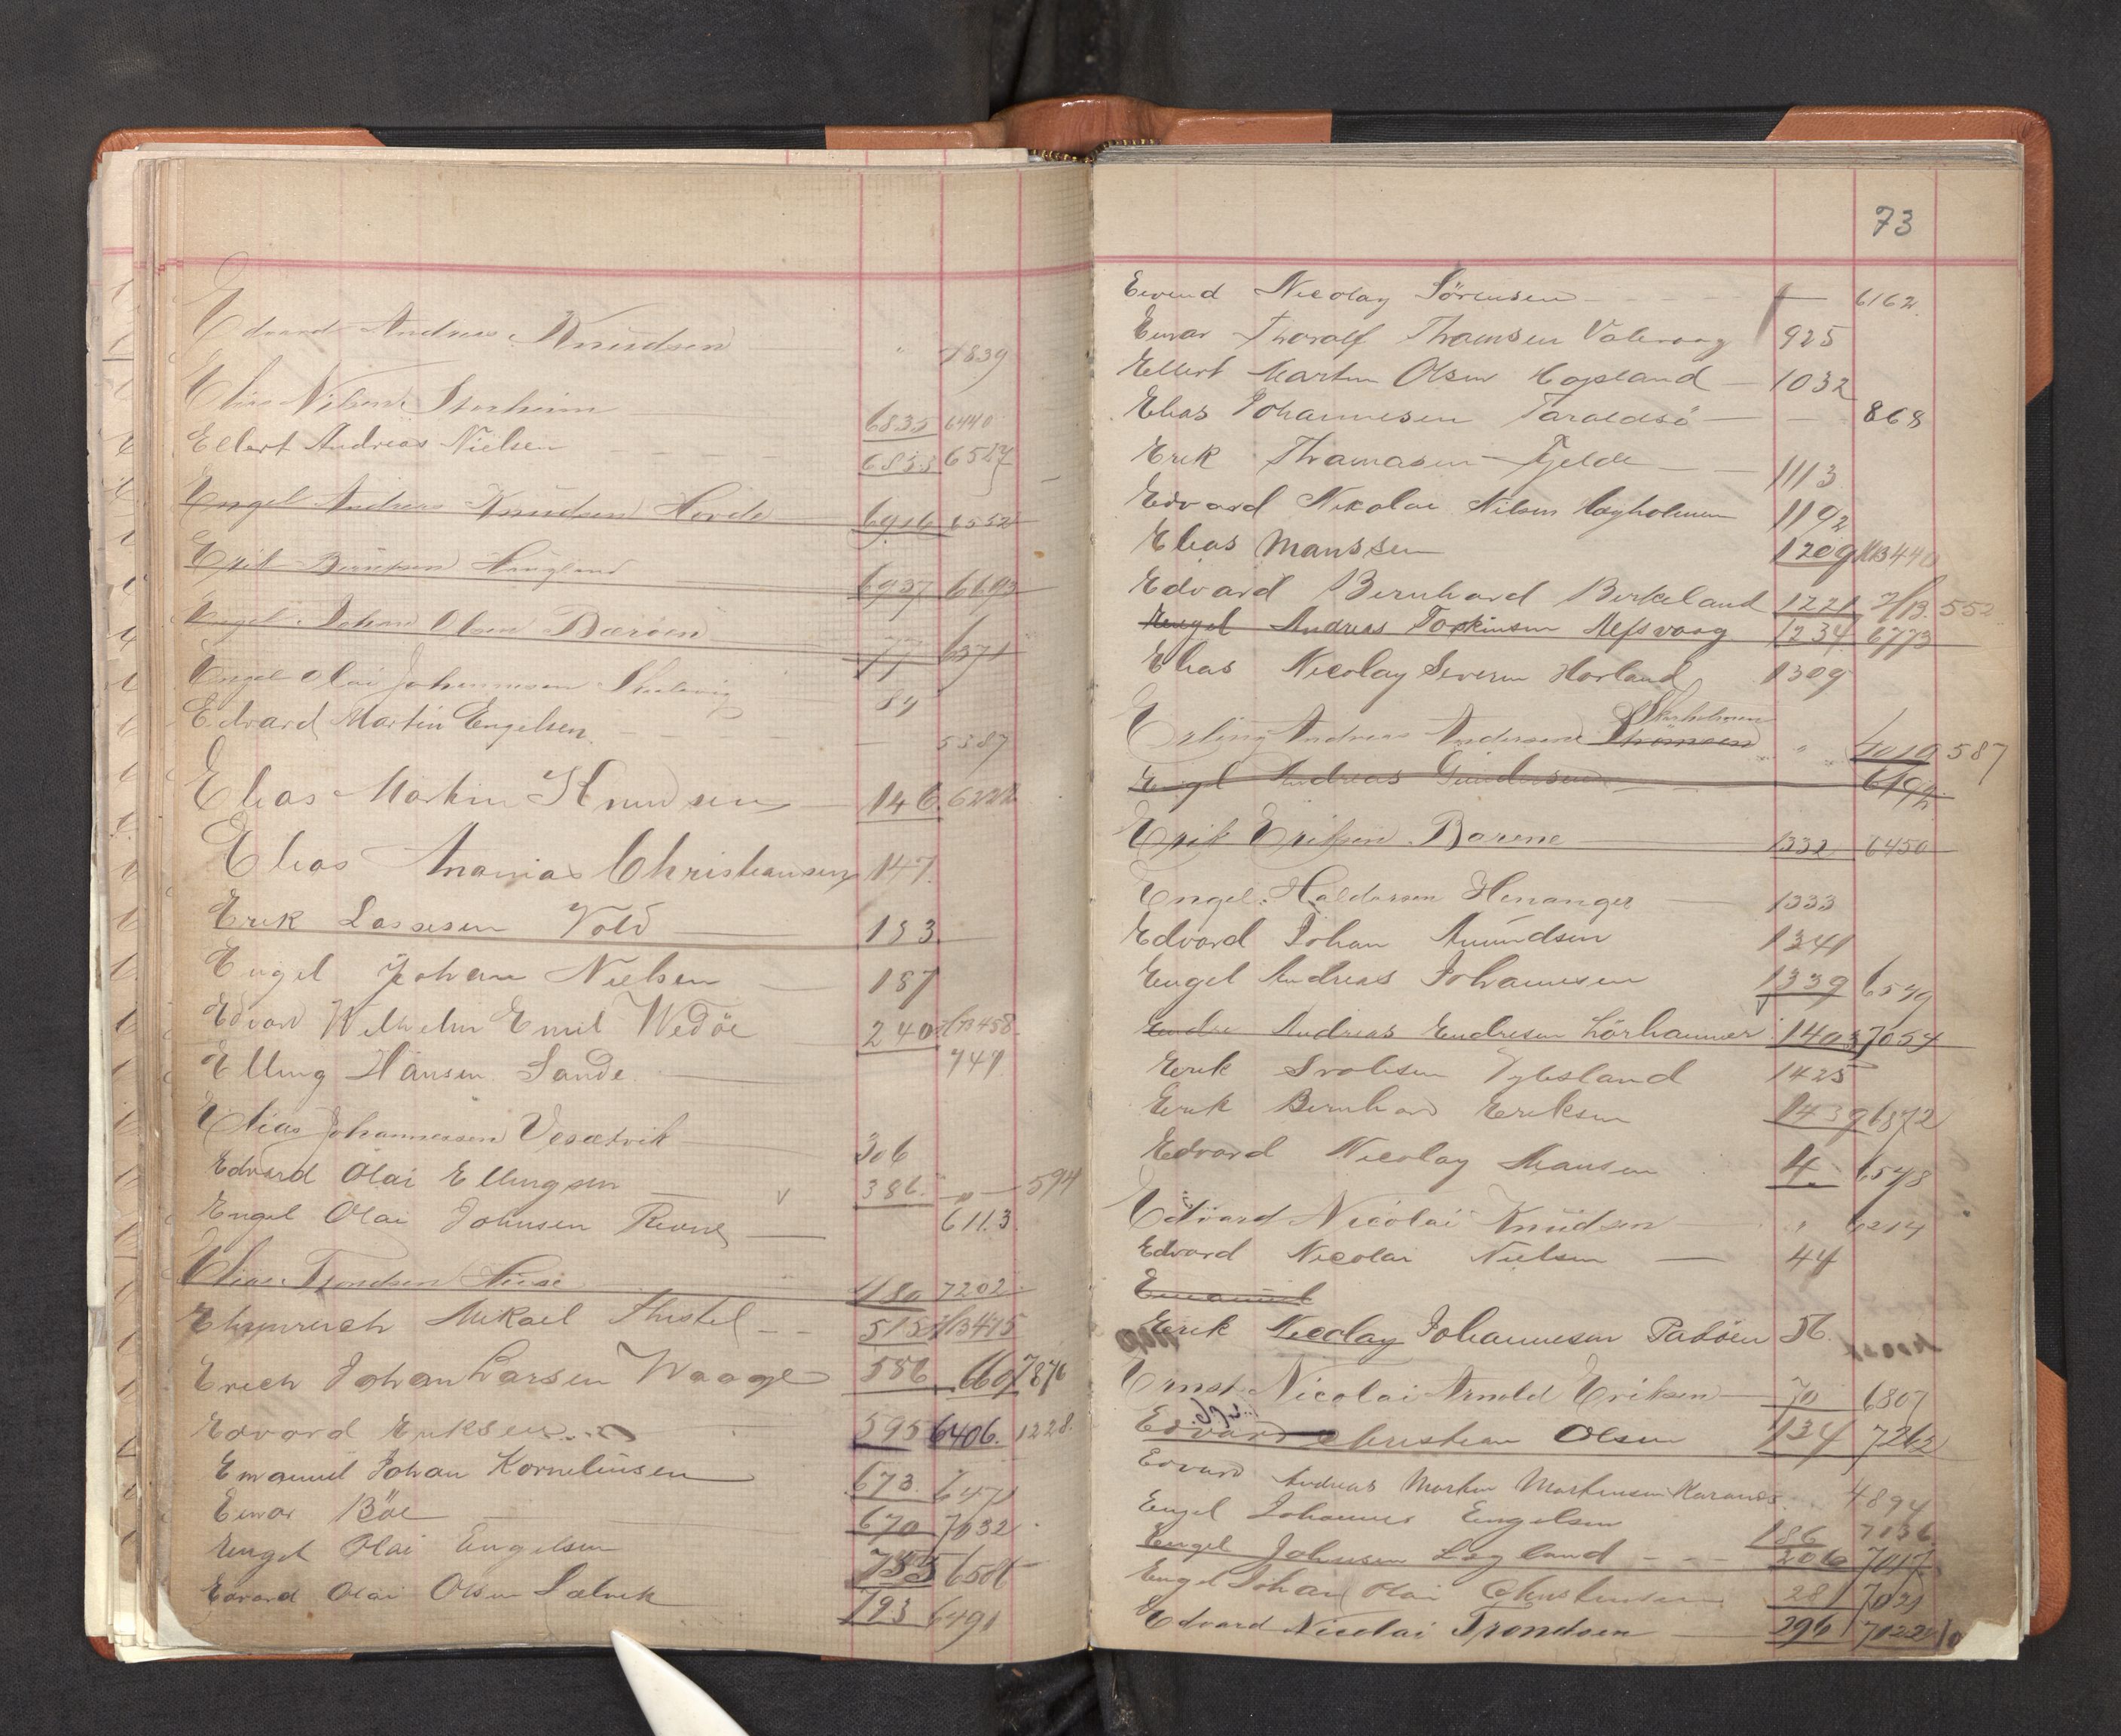 Edvard Andreas Knudsen " 1839
Elias Nilsen Storheim 6835 6440
Ellert Andreas Nielsen 6833 6527
Engel Andreas Knudsen Hovde 6916 6552
Erik Hougland 6937 6693
Engel Johan Olsen Bæroen 77 6371
Engel Olai Johannesen 84
Edvard Martin Engelsen — 5387
Elias Martin Knudsen 146 6222
Elias Ananias Christiansen 147
Erik Lassesen Vold 153
Engel Johan Nielsen 187
Edvard Wilhelm Emil Wedöe 240 458
Elling Hansen Sande 949
Elias Johannessen 306
Edvard Olai Ellingsen 386 594
Engel Olai Johnsen 6113
Elias Trondsen 480 7202
Mikael Thistel 515 475
Erich Johan Larsen Waage 586 7876
Edvard Eriksen 595 6406 1228
Emanuel Johan Kornelinsen 673 6471
Einar Böe 670 7032
Engel Olai Engelsen 753 6586
Edvard Olai Olsen Sælvik 793 6491
73
Eivend Nicolay Sörensen 6162
Einar Thoralf Thomsen Valevaag 925
Ellert Martin Olsen Hopland 1032
Elias Johannesen Taraldsö — 868
Erik Thomasen Fjelde 1113
Edvard Nikolai Nilsen 1192
Elias Manssen 1209 440
Edvard Bernhard Birkeland 1221 7/13 552
Engel Andreas Torkinsen Alfsvaag 1234 6773
Elias Nicolay Severin Horland 1309
Storholmen
Erling Andreas Andersen Thomsen " 587
Engel Andreas Gundersen 6192
Erik Eriksen Borene 1332 6450
Engel Haldorsen Henanger 1333
Edvard Johan Amundsen 1341
Engel Andreas Johannesen 1339 6549
Endre Andreas Endresen Lörhammer 1403 7054
Erik 1425
Erik Bernhard Eriksen 1439 6872
Edvard Nicolay Hansen 4 6548
Edvard Nicolai Knudsen " 6214
Edvard Nicolai Nielsen 44
Emanuel
Erik Nicolay Johannesen 56
Ernst Nicolai Arnold Eriksen 70 6807
Edvard Christian Olsen 134 7262
Edvard Andreas Martin Martinsen 4894
Engel Johannes Engelsen 186 7136
Engel Johnsen Logland 206 7017
Engel Johan Olai 281 7021
Edvard Nicolai Trondsen 296 7022